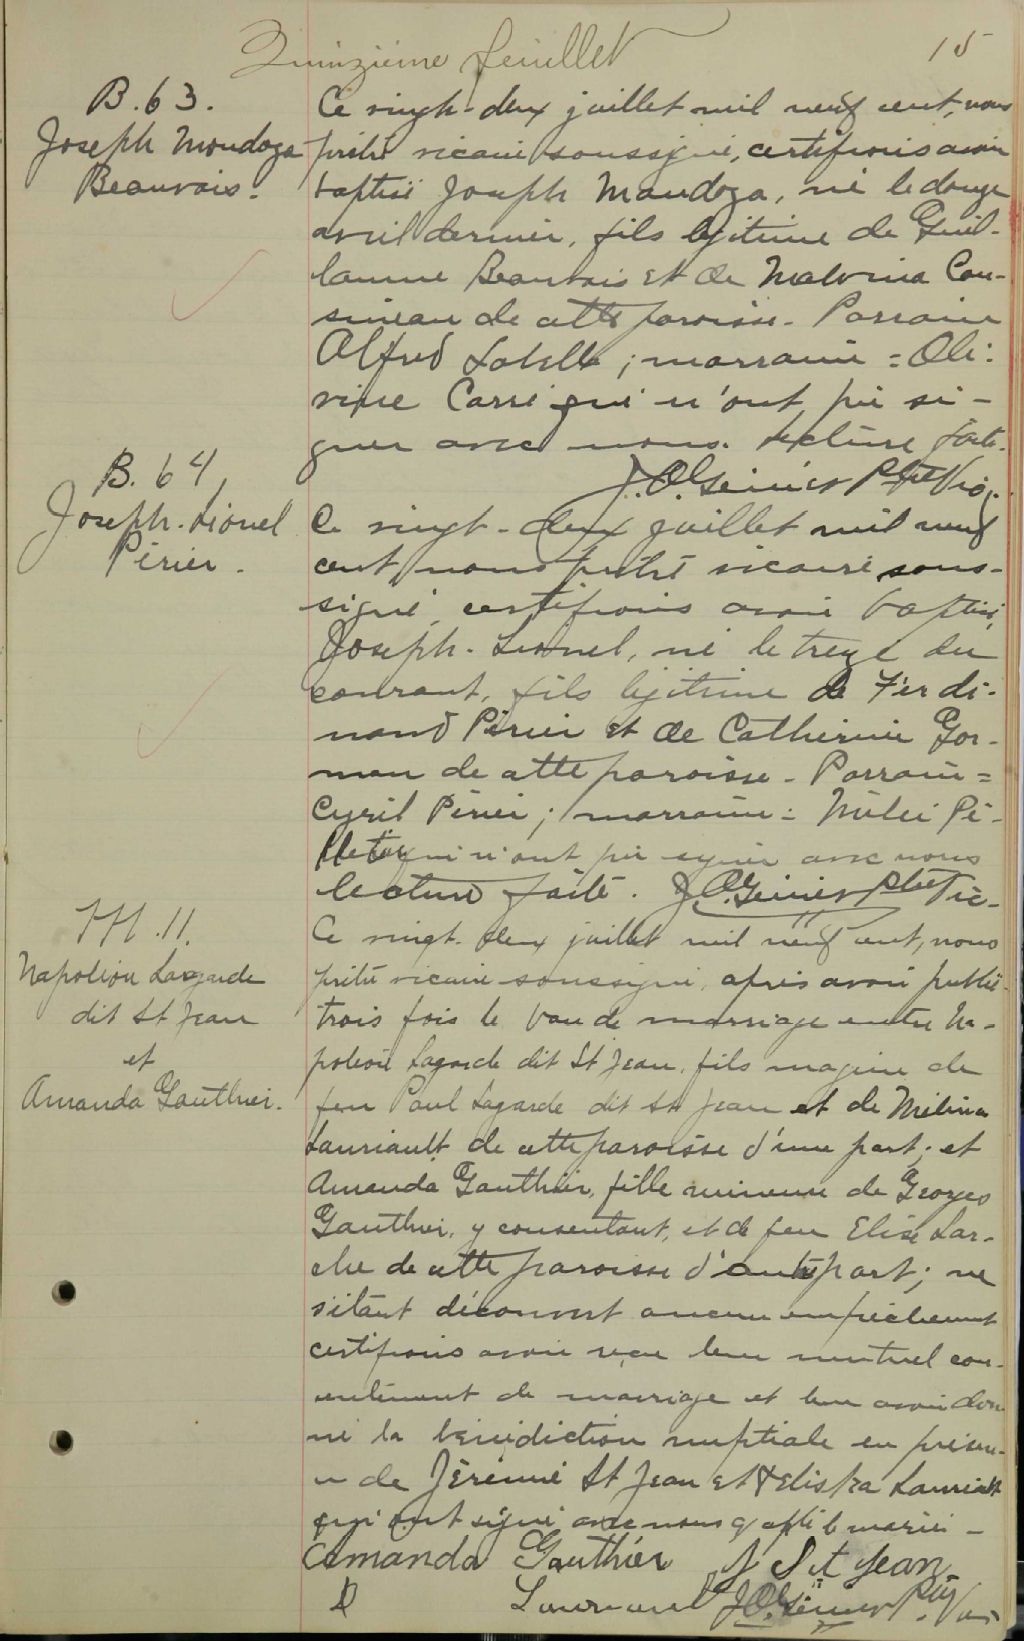 Quinzième feuillet 15
B. 63.
Joseph Mondoza
Beauvais.
Ce vingt-deux juillet mil neuf cent, nous
prêtre vicaire soussigné, certifions avoir
baptisé Joseph Mandoza, né le douze
avril dernier, fils légitime de Guil-
laume Beauvais et de Malvina Cou-
sineau de cette paroisse. Parrain
Alfred Labelle; marraine = Oli-
vine Carré qui n'ont pu si-
gner avec nous. Lecture faite.
Ptre Vic.
B. 64
Joseph-Lionel
Périer.
Ce vingt-deux juillet mil neuf
cent, nous prêtre vicaire sous-
signé, certifions avoir baptisé,
Joseph-Lionel, né le treize du
courant, fils légitime de Ferdi-
nand Périer et de Catherine Gor-
man de cette paroisse. Parrain =
Cyril Périer; marraine =
qui n'ont pu signer avec nous
lecture faite. Ptre Vic.
M. 11.
Napoléon Lagarde
dit St Jean
et
Amanda Gauthier.
Ce vingt-deux juillet mil neuf cent, nous
prêtre vicaire soussigné, après avoir publié
trois fois le ban de mariage entre Na-
poléon Lagarde dit St Jean, fils majeur de
feu Paul Lagarde dit St Jean et de Mélina
Lauriault de cette paroisse d'une part; et
Amanda Gauthier, fille mineure de Georges
Gauthier, y consentant, et de feu Elise Lar-
che de cette paroisse d'autre part; ne
s'étant découvert aucun empêchement
certifions avoir reçu leur mutuel con-
sentement de mariage et leur avoir don-
né la bénédiction nuptiale en présen-
ce de Jérémie St Jean et Lauriault
qui ont signé avec nous
Amanda Gauthier J St Jean
Lauriault Ptre Vic